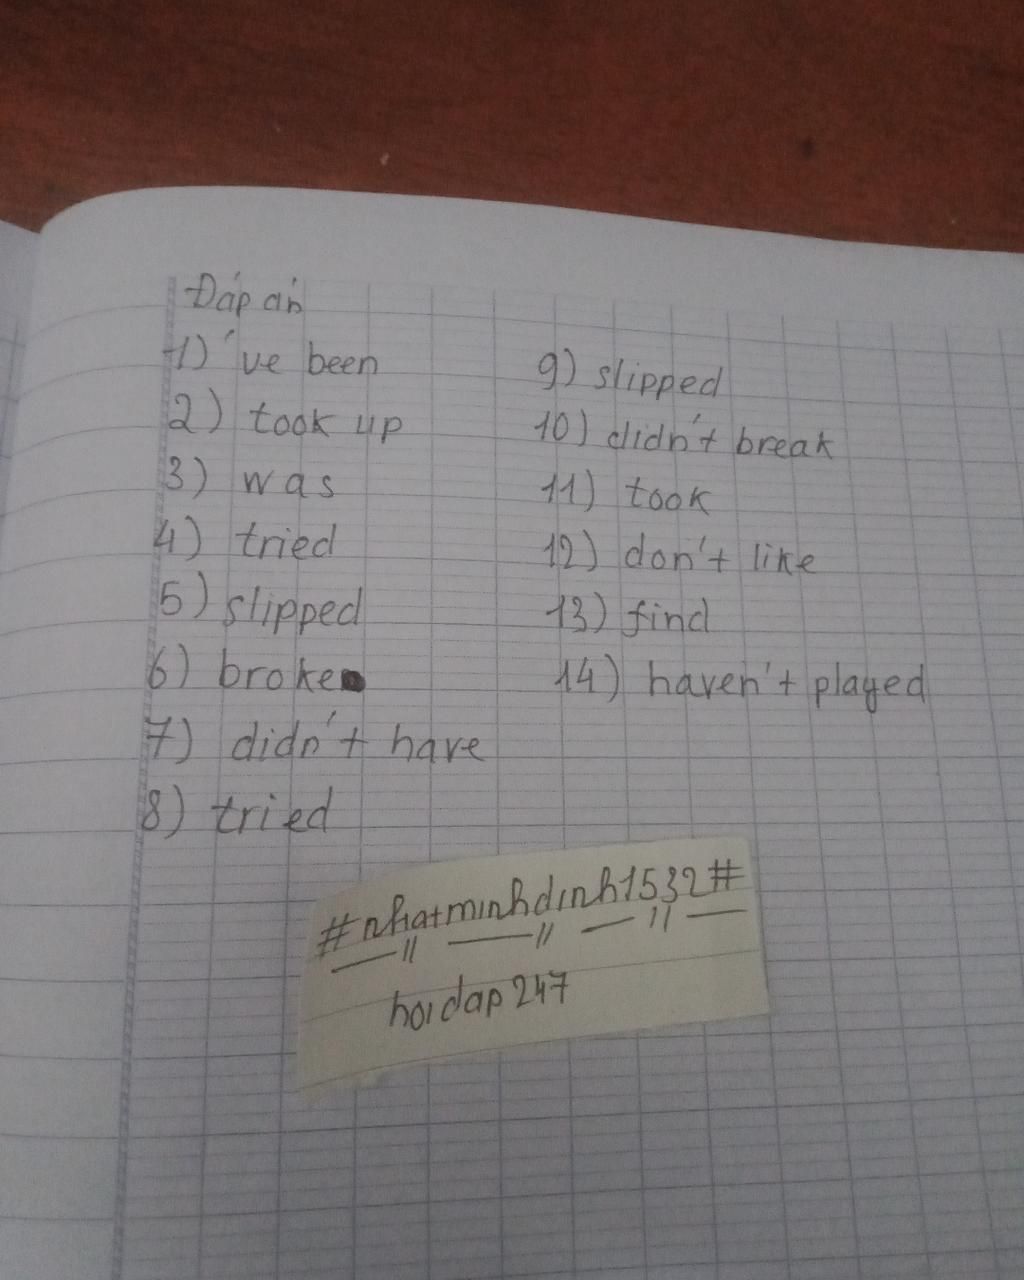 Đáp án
1) 've been
2) took up
3) was
4) tried
5) slipped
6) broke
7) didn't have
8) tried
9) slipped
10) didn't break
11) took
12) don't like
13) find
14) haven't played
#nhatminhdinh1532#
hoidap247